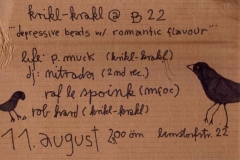 krikl-krakl @ B 22
"depressive beats w/ romantic flavour"
life: p. muck (krikl-krakl)
dj: nitrada (2nd rec.)
raf le spoink (mfoc)
rob hard (krikl-krakl)
11. august 2200 öm lerndorfstr. 22